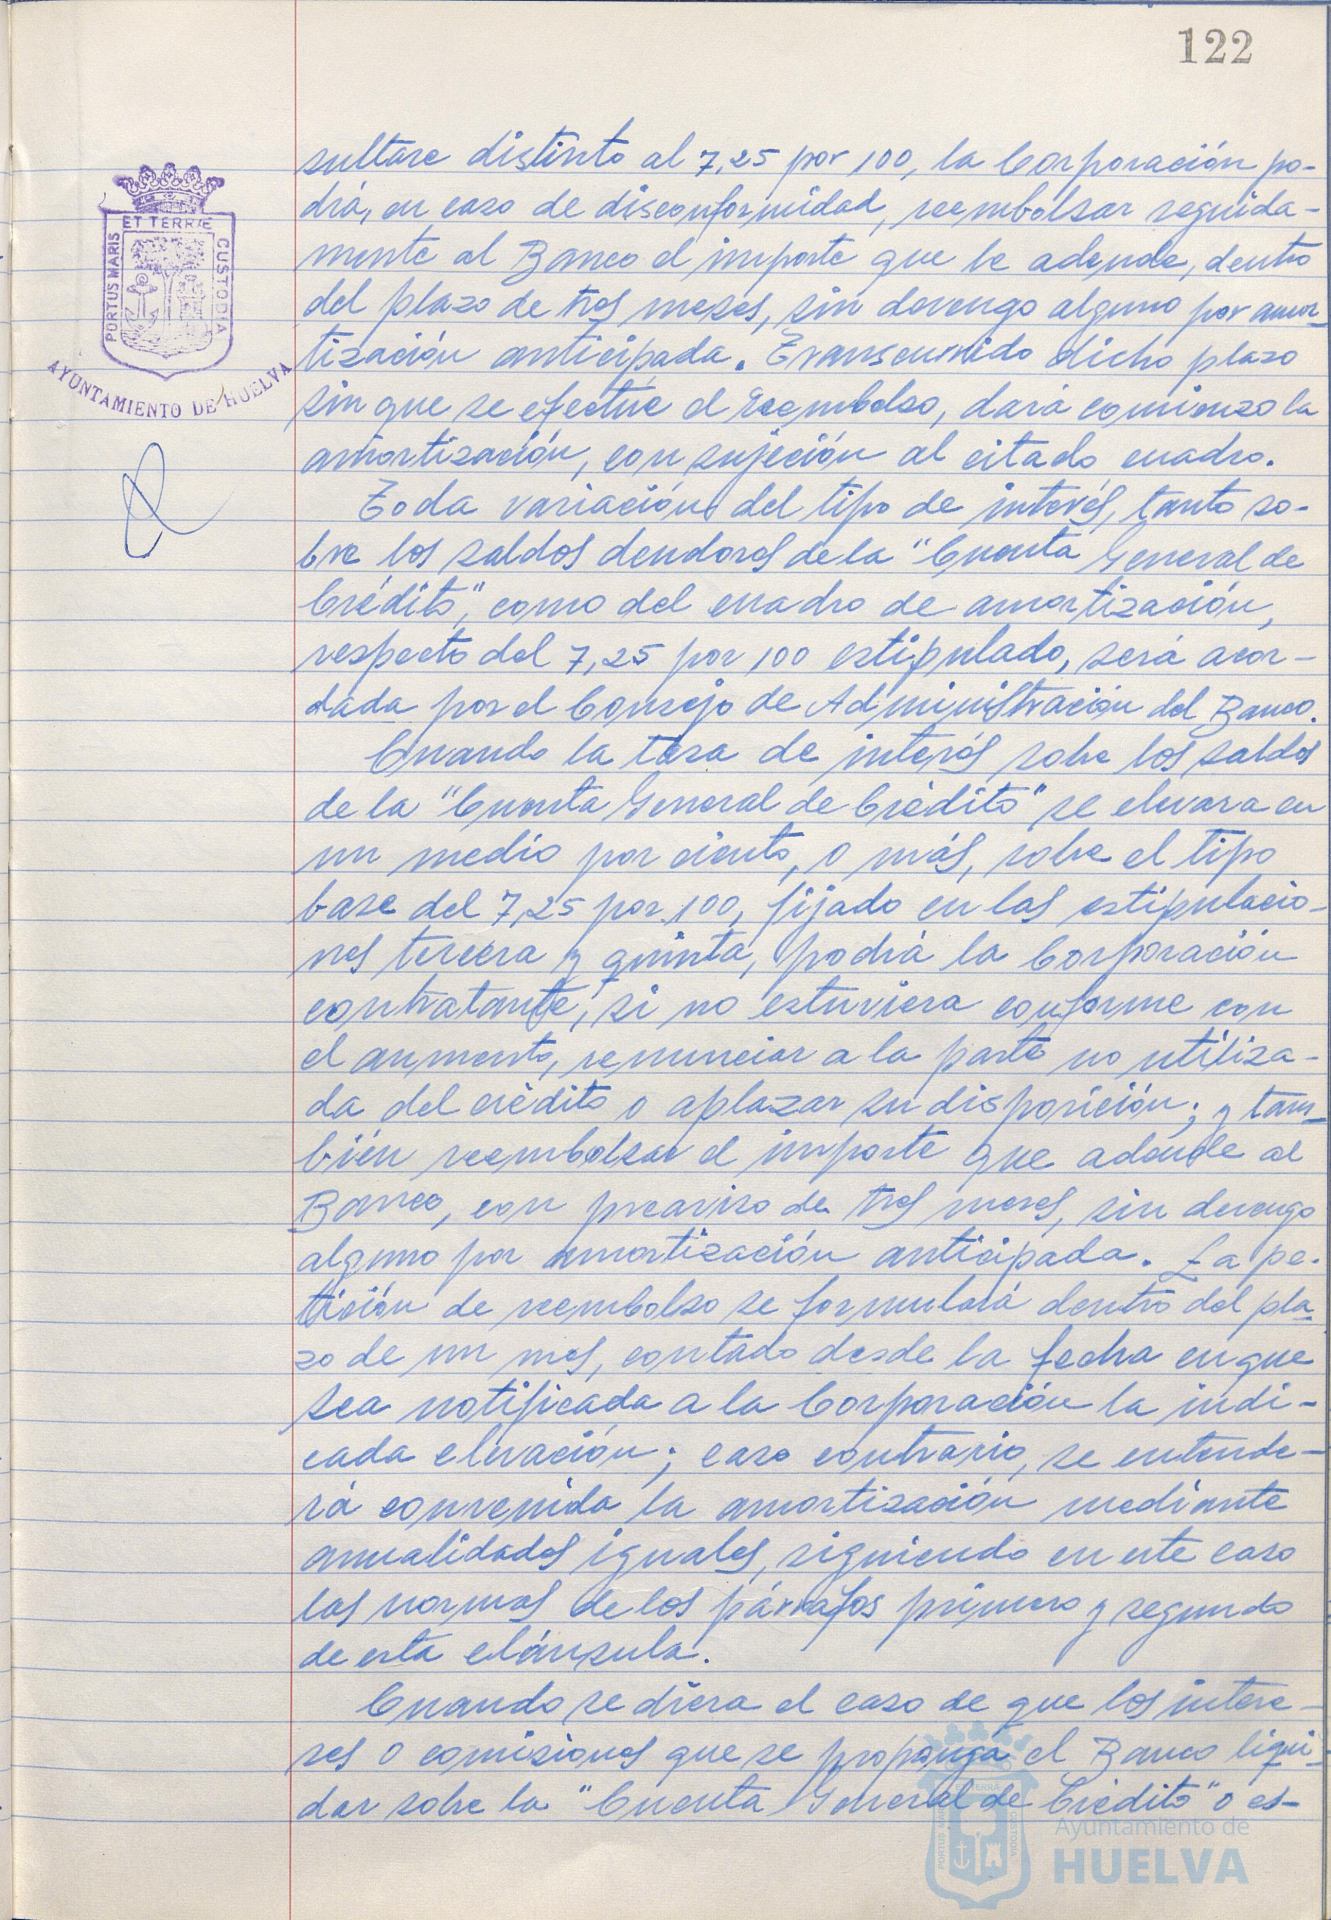 122
ET TERRÆ
PORTUS MARIS
CUSTODIA
AYUNTAMIENTO DE HUELVA
sultare distinto al 7,25 por 100, la Corporación po-
drá, en caso de disconformidad, reembolsar seguida-
mente al Banco el importe que le adeude, dentro
del plazo de tres meses, sin devengo alguno por amor-
tización anticipada. Transcurrido dicho plazo
sin que se efectue el reembolso, dará comienzo la
amortización, con sujeción al citado cuadro.
Toda variación del tipo de interés, tanto so-
bre los saldos deudores de la "Cuenta General de
Crédito", como del cuadro de amortización,
respecto del 7,25 por 100 estipulado, será acor-
dada por el Consejo de Administración del Banco.
Cuando la tasa de interés sobre los saldos
de la "Cuenta General de Crédito" se elevara en
un medio por ciento, o más, sobre el tipo
base del 7,25 por 100, fijado en las estipulacio-
nes tercera y quinta, podrá la Corporación
contratante, si no estuviera conforme con
el aumento, renunciar a la parte no utiliza-
da del crédito o aplazar su disposición; y tam-
bién reembolsar el importe que adeude al
Banco, con preaviso de tres meses, sin devengo
alguno por amortización anticipada. La pe-
tición de reembolso se formulará dentro del pla-
zo de un mes, contado desde la fecha en que
sea notificada a la Corporación la indi-
cada elevación; caso contrario, se entende-
rá convenida la amortización mediante
anualidades iguales, siguiendo en este caso
las normas de los párrafos primero y segundo
de esta cláusula.
Cuando se diera el caso de que los intere-
ses o comisiones que se proponga el Banco liqui-
dar sobre la "Cuenta General de Crédito" o es-
Ayuntamiento de
HUELVA